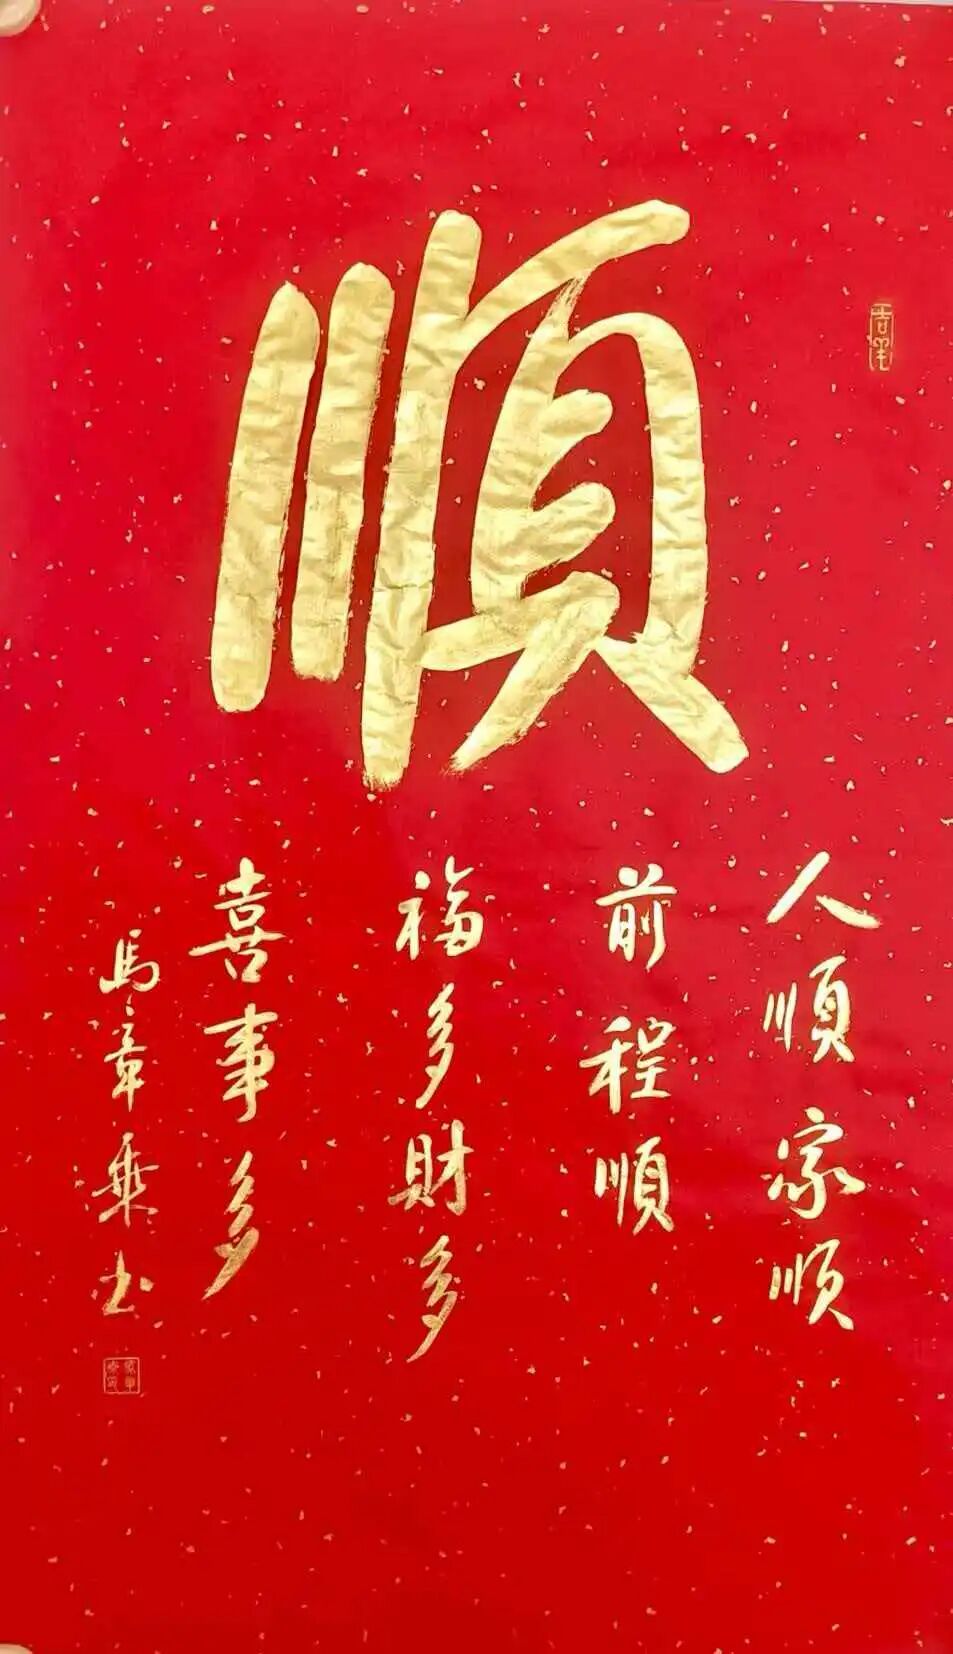 順
人順家順
前程順
福多财多
喜事多
馬章乘书